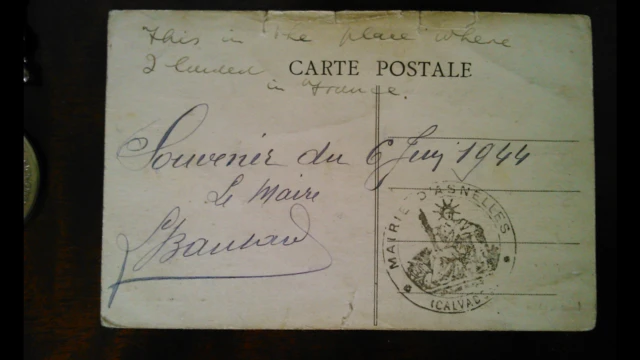 This is the place where
I landed
in France.
CARTE POSTALE
Souvenir du 6 Juin 1944
Le Maire
MAIRIE D'ASNELLES
(CALVADOS)